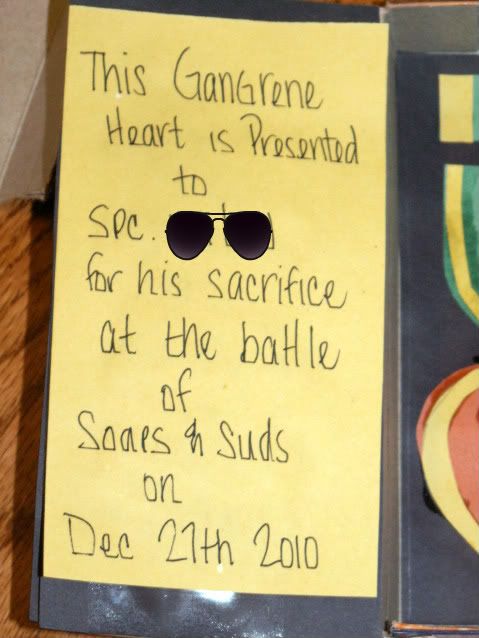 This GanGrene
Heart is Presented
to
SPC.
for his sacrifice
at the battle
of
Soaps & Suds
on
Dec 27th 2010